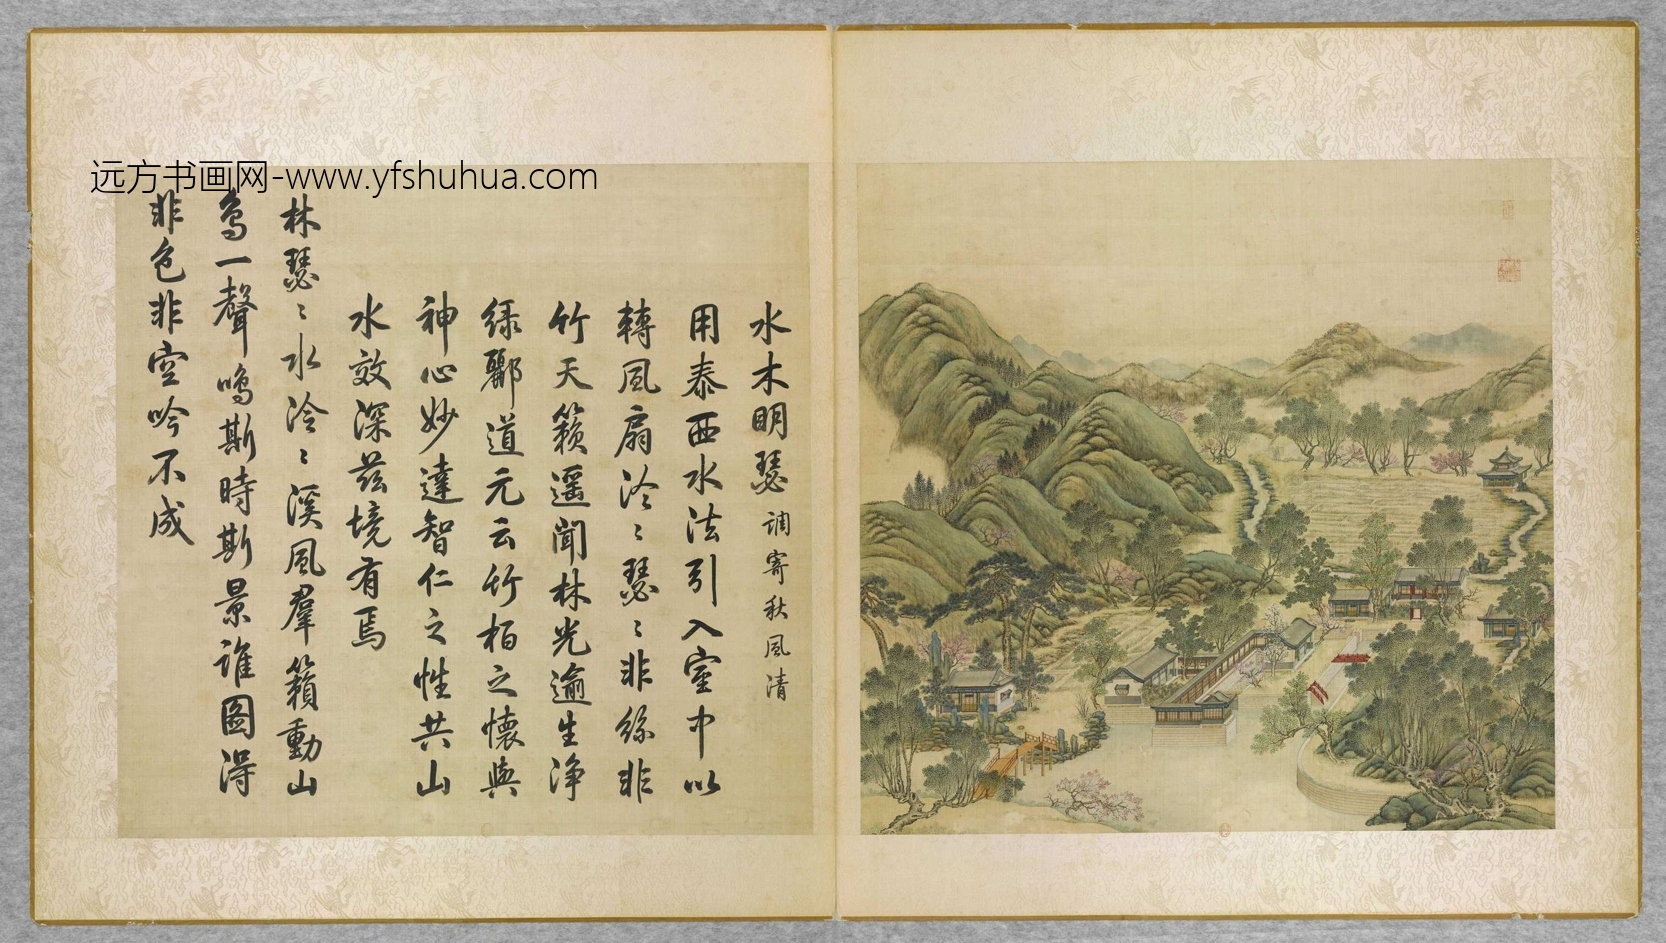 远方书画网-www.yfshuhua.com
水木明瑟 調寄秋風清
用泰西水法引入室中以
轉風扇泠〻瑟〻非絲非
竹天籟遥聞林光逾生净
緑酈道元云竹栢之懷與
神心妙達智仁之性共山
水效深兹境有焉
林瑟〻水泠〻溪風羣籟動山
鳥一聲鳴斯時斯景誰圖得
非色非空吟不成